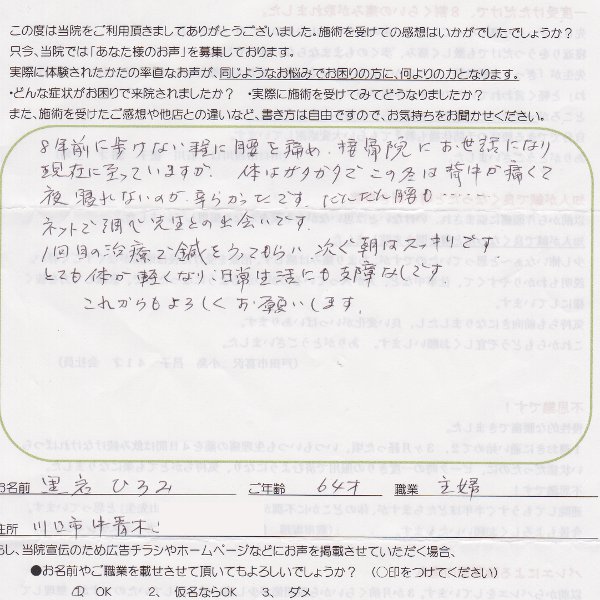 この度は当院をご利用頂きましてありがとうございました。施術を受けての感想はいかがでしたでしょうか?
只今、当院では「あなた様のお声」を募集しております。
実際に体験されたかたの率直なお声が、同じようなお悩みでお困りの方に、何よりの力となります。
・どんな症状がお困りで来院されましたか? ・実際に施術を受けてみてどうなりましたか?
また、施術を受けたご感想や他店との違いなど、書き方は自由ですので、お気持ちをお聞かせください。
8年前に歩けない程に腰を痛め、接骨院にお世話になり
現在に至っていますが、体はガタガタでこの冬は背中が痛くて
夜寝れないのが辛らかったです。だんだん腰も
ネットで調べ先生との出会いです。
1回目の治療で鍼をうってもらい次ぐ朝はスッキリです。
とても体が軽くなり、日常生活にも支障なしです
これからもよろしくお願いします。
お名前 黒岩 ひろみ ご年齢 64才 職業 主婦
住所 川口市中青木
もし、当院宣伝のため広告チラシやホームページなどにお声を掲載させていただく場合、
●お名前やご職業を載せさせて頂いてもよろしいでしょうか? (○印をつけてください)
① OK 2、仮名ならOK 3、ダメ